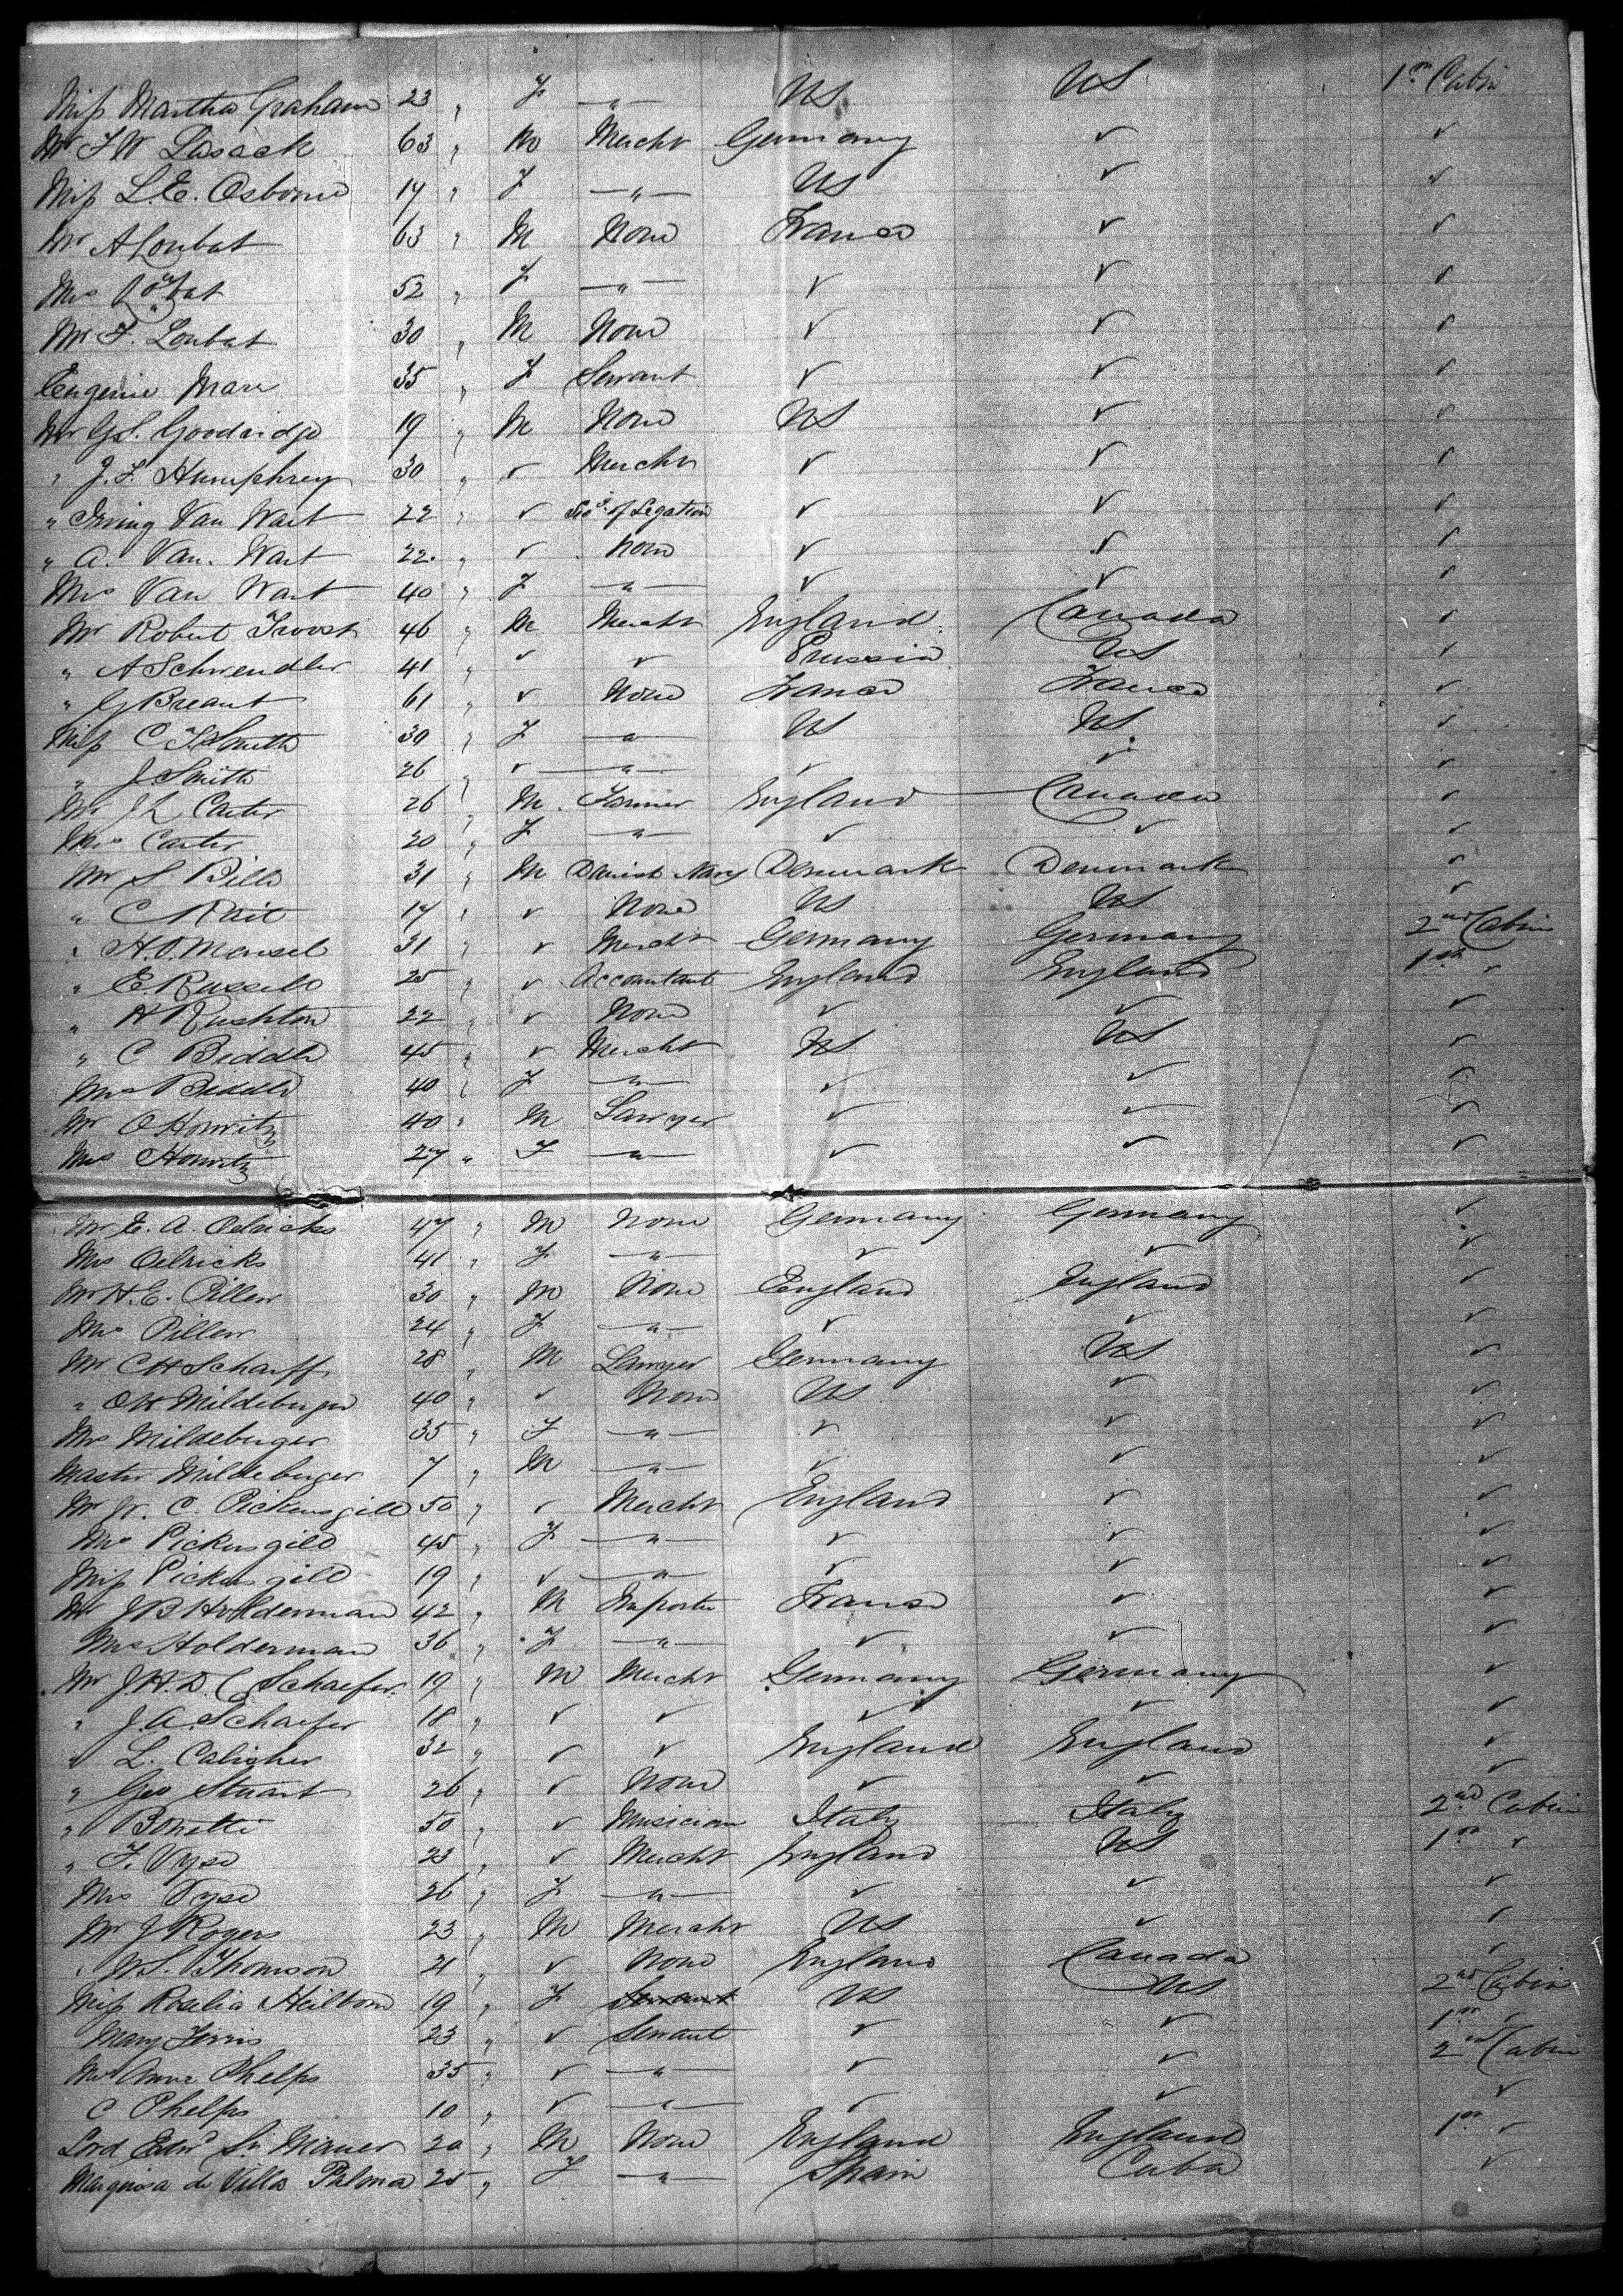 Miss Martha Graham 23 " F — " — US US 1st Cabin
Mr F W Lasack 63 " M Mercht Germany ✓ ✓
Miss L. E. Osborne 17 " F — " — US ✓ ✓
Mr A Loubat 63 " M None France ✓ ✓
Mrs Loubat 52 " F — " — ✓ ✓ ✓
Mr F. Loubat 30 " M None ✓ ✓ ✓
Eugenie Mare 35 " F Servant ✓ ✓ ✓
Mr G S. Goodridge 19 " M None US ✓ ✓
" J. F. Humphrey 30 " ✓ Mercht ✓ ✓ ✓
" Irving Van Wart 22 " ✓ Sec of Legation ✓ ✓ ✓
" A. Van. Wart 22 " ✓ None ✓ ✓ ✓
Mrs Van Wart 40 " F — " — ✓ ✓ ✓
Mr Robert Troost 46 " M Mercht England Canada ✓
" A Schwendler 41 " ✓ ✓ Prussia US ✓
" G Breant 61 " ✓ None France France ✓
Miss C Smith 30 " F — " — US US ✓
" J. Smith 26 " ✓ — " — ✓ ✓ ✓
Mr J L Carter 26 " M Farmer England Canada ✓
Mrs Carter 20 " F — " — ✓ ✓ ✓
Mr S Bille 31 " M Danish Navy Denmark Denmark ✓
" C Rait 17 " ✓ None US US ✓
" H. O. Mensel 31 " ✓ Mercht Germany Germany 2nd Cabin
" E Russell 25 " ✓ Accountant England England 1st ✓
" H Rushton 22 " ✓ None ✓ ✓ ✓
" C Biddle 45 " ✓ Mercht US US ✓
Mrs Biddle 40 " F — " — ✓ ✓ ✓
Mr O Horwitz 40 " M Lawyer ✓ ✓ ✓
Mrs Horwitz 27 " F — " — ✓ ✓ ✓
Mr E. A. Oelricks 47 " M None Germany Germany ✓
Mrs Oelricks 41 " F — " — ✓ ✓ ✓
Mr H. E. Pillow 30 " M None England England ✓
Mrs Pillow 24 " F — " — ✓ ✓ ✓
Mr C H Scharff 28 " M Lawyer Germany US ✓
" O H Mildeberger 40 " ✓ None US ✓ ✓
Mrs Mildeberger 35 " F — " — ✓ ✓ ✓
Master Mildeberger 7 " M — " — ✓ ✓ ✓
Mr W. C. Pickersgill 50 " ✓ Mercht England ✓ ✓
Mrs Pickersgill 45 " F — " — ✓ ✓ ✓
Miss Pickersgill 19 " ✓ — " — ✓ ✓ ✓
Mr J B Holderman 42 " M Importer France ✓ ✓
Mrs Holderman 36 " F — " — ✓ ✓ ✓
Mr J. H. D. C Schaefer 19 " M Mercht Germany Germany ✓
" J. A. Schaefer 18 " ✓ ✓ ✓ ✓ ✓
" L. Calisher 32 " ✓ ✓ England England ✓
" Geo Stuart 26 " ✓ None ✓ ✓ ✓
" Bonetti 50 " ✓ Musician Italy Italy 2nd Cabin
" F. Vyse 23 " ✓ Mercht England US 1st ✓
Mrs Vyse 26 " F — " — ✓ ✓ ✓
Mr J Rogers 23 " M Mercht US ✓ ✓
" W. S. Thomson 21 " ✓ None England Canada ✓
Miss Roselia Heilborn 19 " F Servant US US 2nd Cabin
Mary Ferris 23 " ✓ Servant ✓ ✓ 1st ✓
Mrs Anne Phelps 35 " ✓ — " — ✓ ✓ 2nd Cabin
C Phelps 10 " ✓ — " — ✓ ✓ ✓
Lord Edwd St Mauer 20 " M None England England 1st ✓
Marquisa de Villa Palma 25 " F — " — Spain Cuba ✓